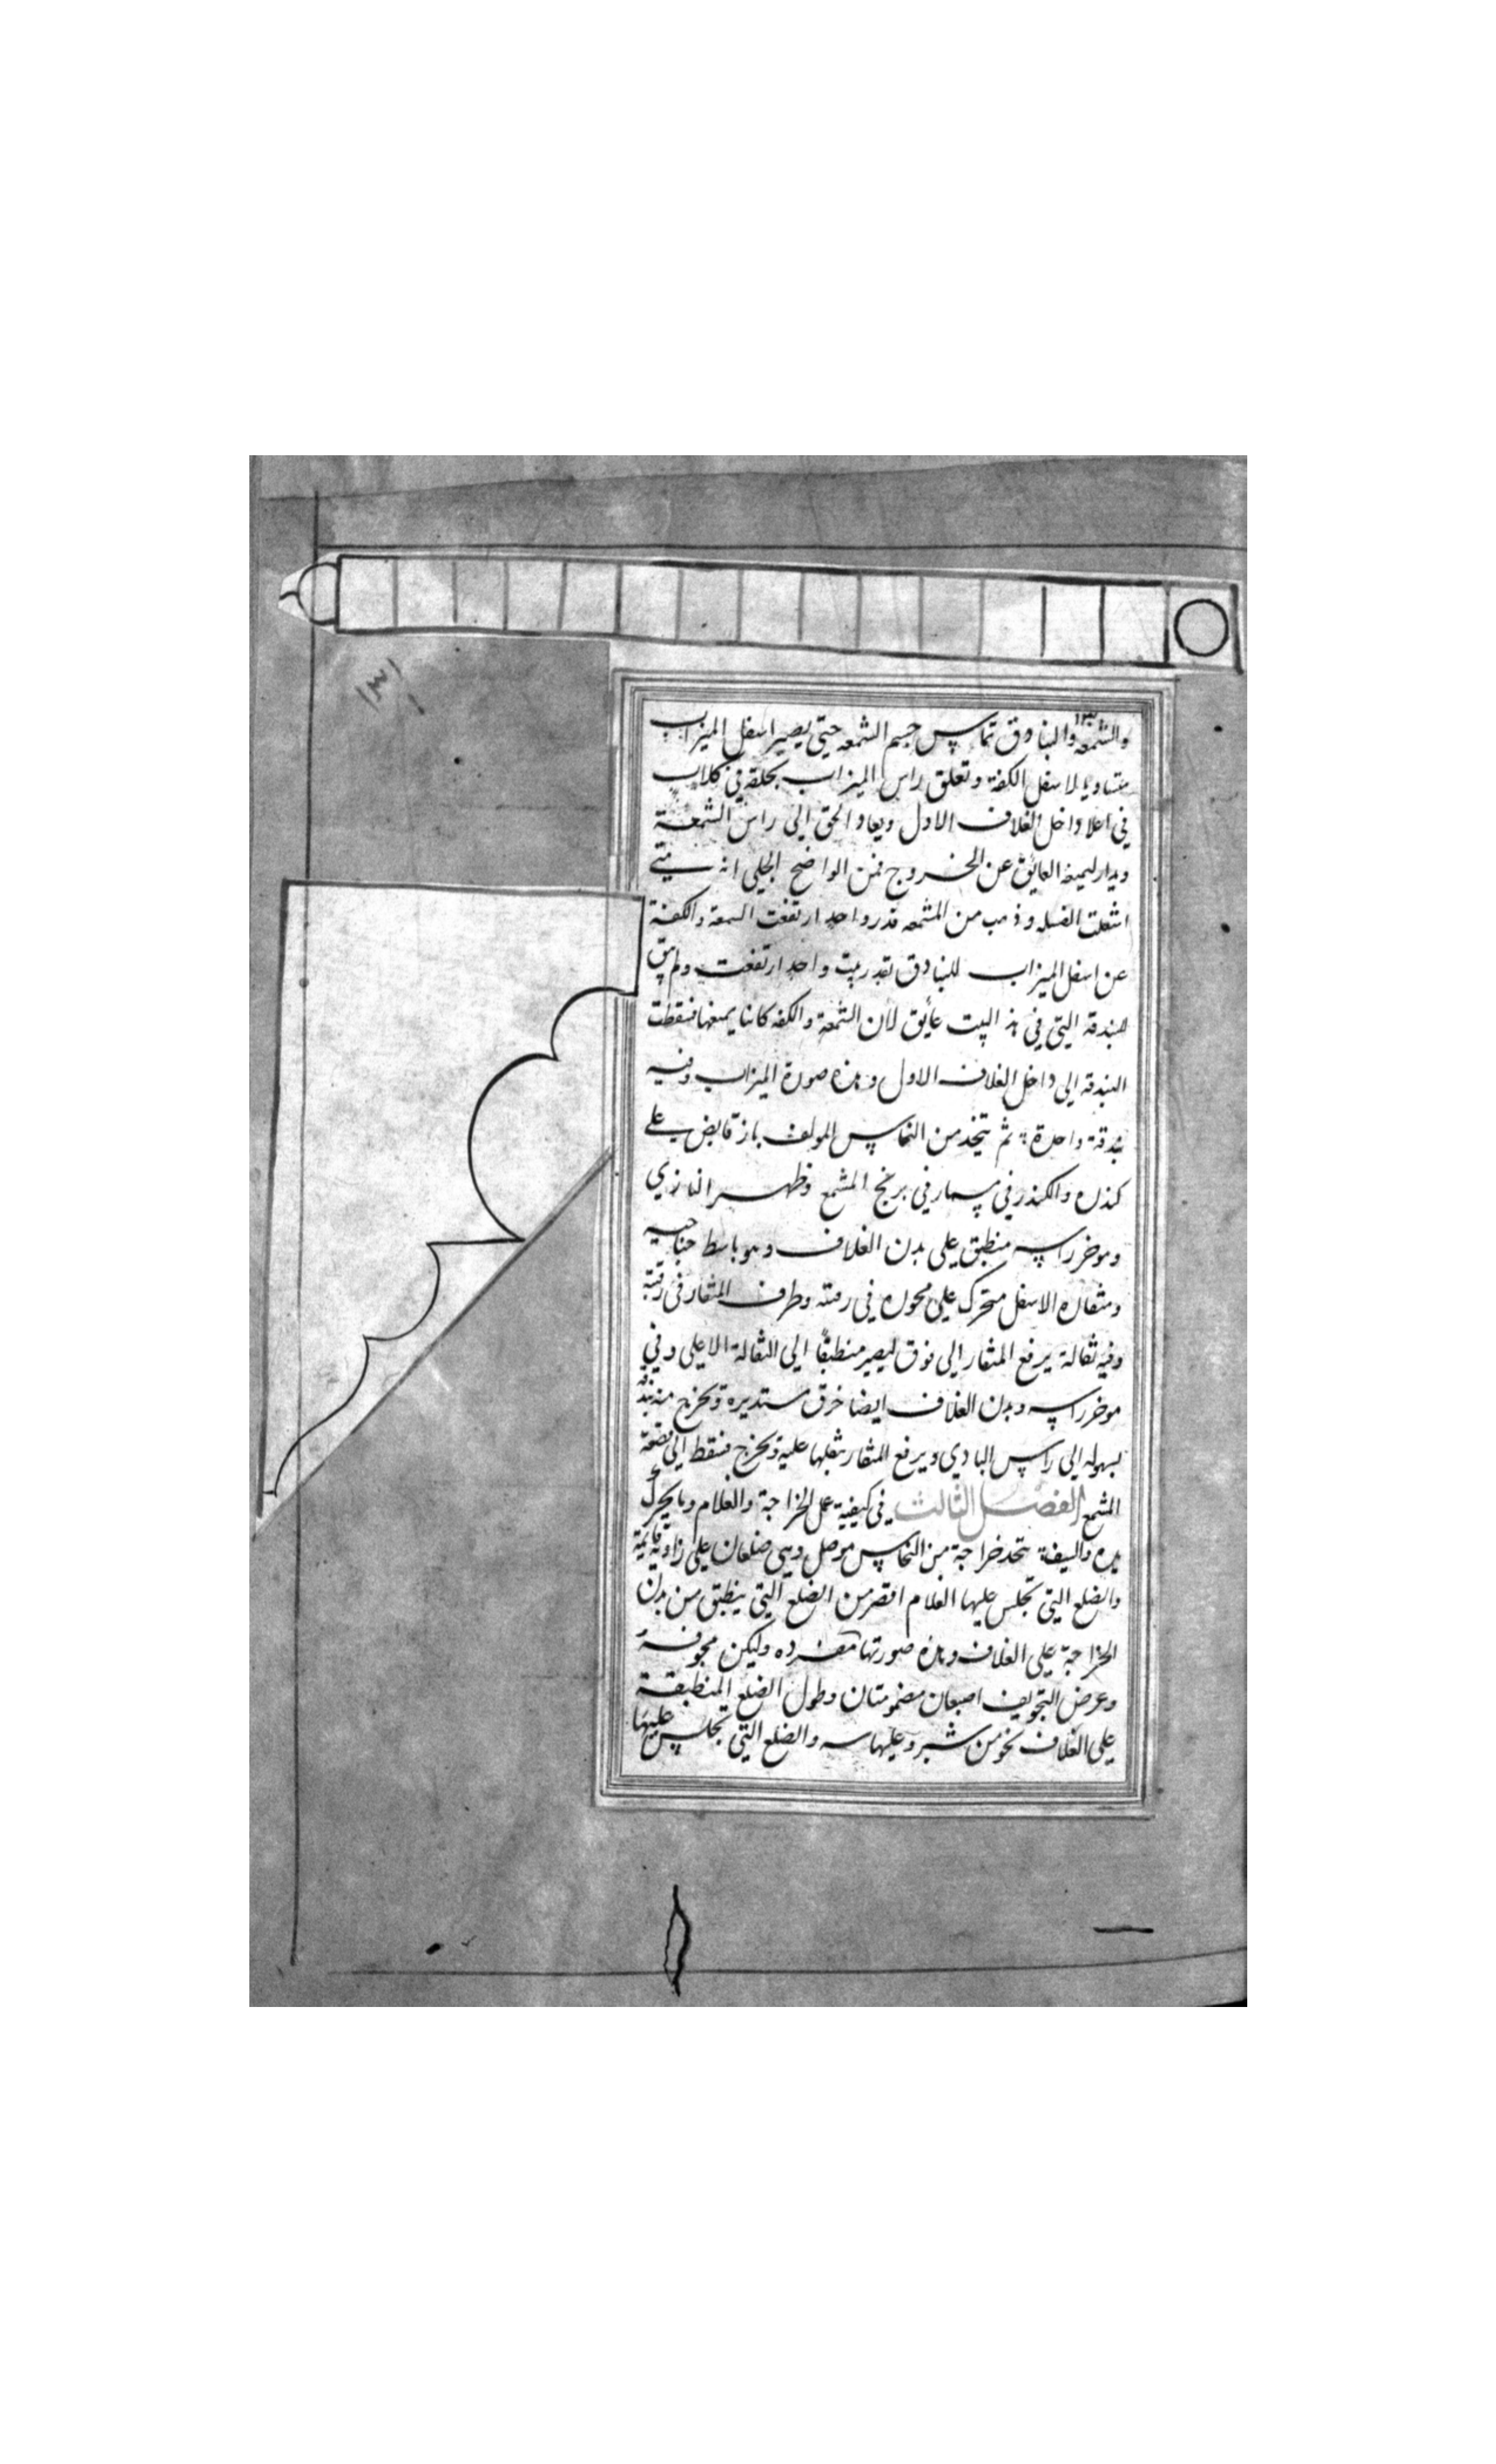 ١٣١
والشمعه والبنادق تماس جسم الشمعه حتى يصير اسفل الميزاب
متساويا لاسفل الكفة وتعلق راس الميزاب بحلقة في كلاب
في اعلا داخل الغلاف الاول ويعاد الحق الى راس الشمعة
ويدار ليمنعه العايق عن الخروج فمن الواضح الجلي انه متى
اشعلت الفتيله وذهب من الشمعه قدر واحد ارتفعت الشمعة والكفة
عن اسفل الميزاب للبنادق بقدر بيت واحد ارتفعت ولم يبق
للبندقه التي في هذ البيت عايق لأن الشمعة والكفه كانتا يمنعها فسقطت
البندقه الى داخل الغلاف الاول وهذه صورة الميزاب وفيه
بندقة واحدة ثم يتخذ من النحاس المولف باز قابض على
كندره والكندر في مسمار في برنج المشمع وظهر البازي
وموخر راسه منطبق على بدن الغلاف وهو باسط جناحيه
ومنقاره الاسفل متحرك على محور في رقبته وطرف المنقار في رقبته
وفيه ثقالة يرفع المنقار الى فوق ليصير منطبقًا الى الثقالة الاعلى وفي
موخر راسه وبدن الغلاف ايضا خرق مستديرة وتخرج منه بندقة
بسهوله الى راس البازي ويرفع المنقار بثقلها عليه وتخرج فتسقط الى قصعة
المشمع الفصل الثالث في كيفية عمل الخراجة والغلام وما يحرك
يده والسيف يتخذ خراجة من النحاس موصل وهي ضلعان على زاوية قايمة
والضلع التي تجلس عليها الغلام اقصر من الضلع التي ينطبق من بدن
الخراجة على الغلاف وهذه صورتها مفرده وليكن مجوفة
وعرض التجويف اصبعان مضمومتان وطول الضلع المنطبقة
على الغلاف نحو من شبر وعليها سه والضلع التي تجلس عليها